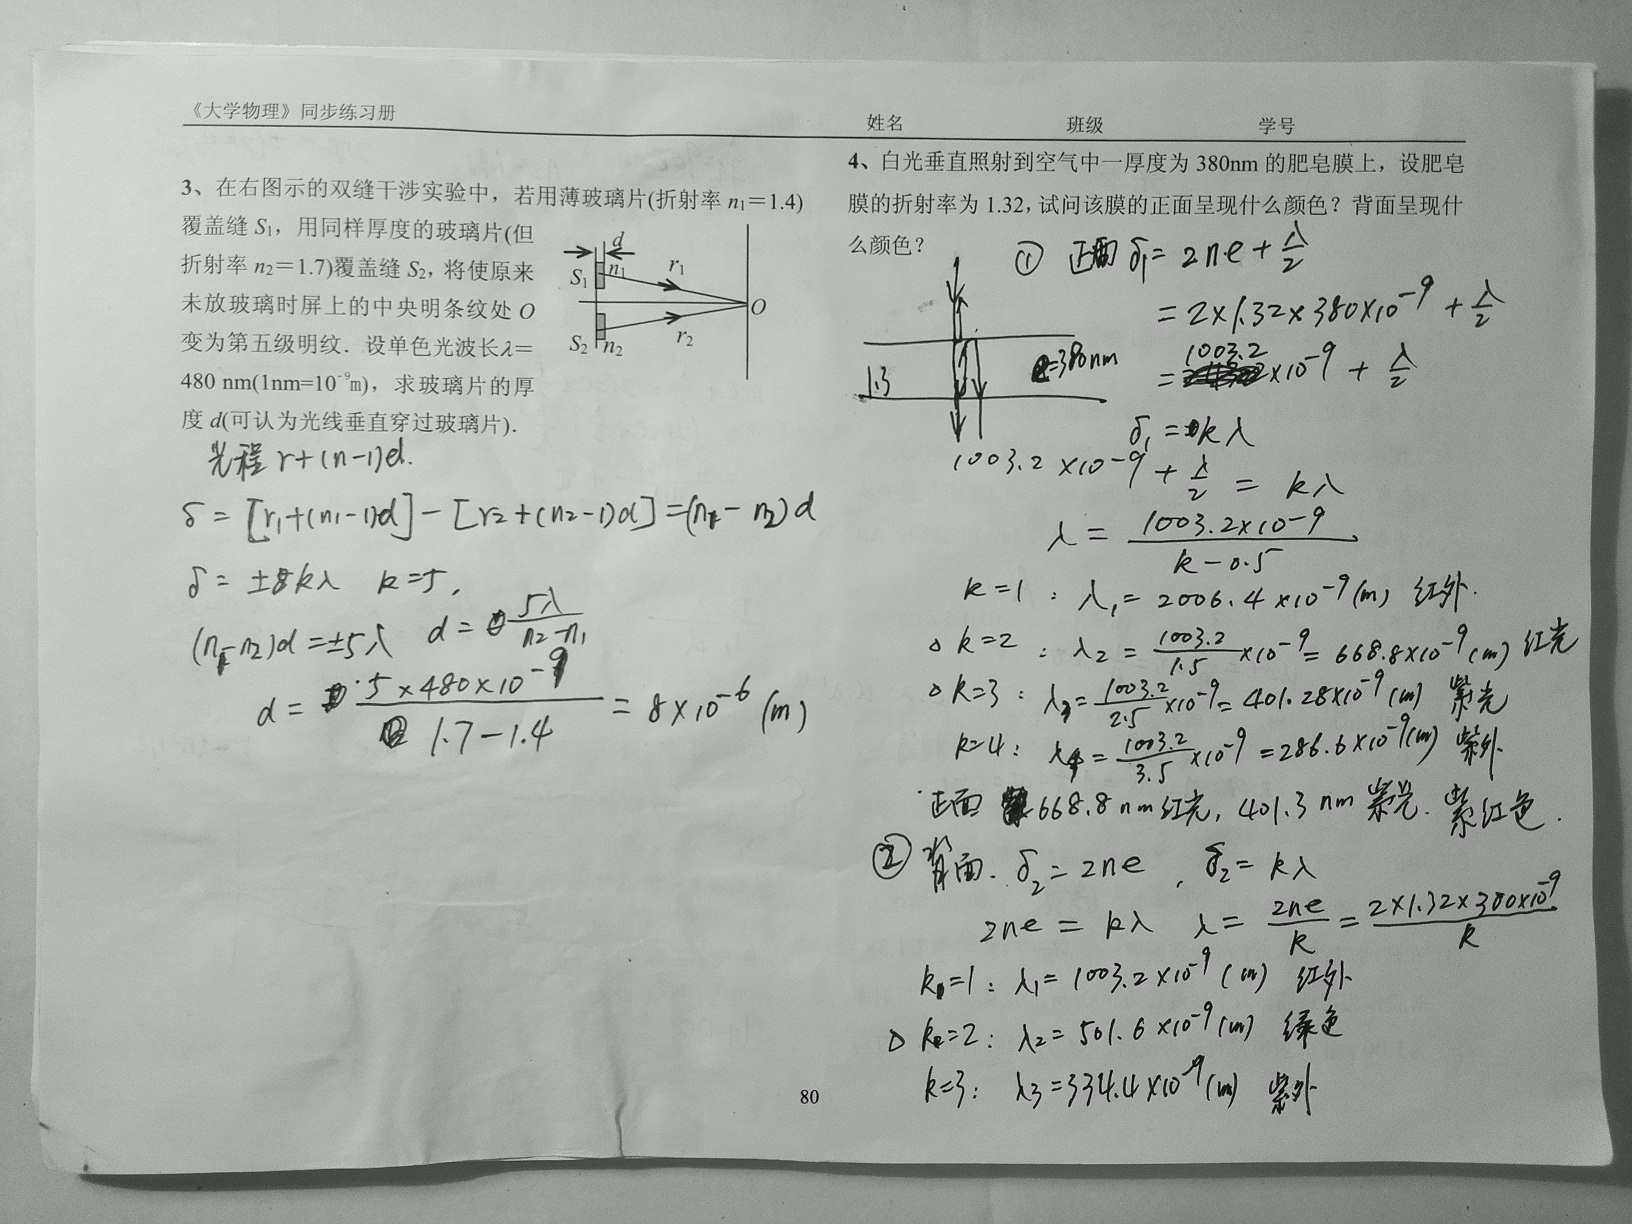 《大学物理》同步练习册
3、在右图示的双缝干涉实验中，若用薄玻璃片(折射率 n₁＝1.4)
覆盖缝 S₁，用同样厚度的玻璃片(但
折射率 n₂＝1.7)覆盖缝 S₂，将使原来
未放玻璃时屏上的中央明条纹处 O
变为第五级明纹．设单色光波长λ＝
480 nm(1nm=10⁻⁹m)，求玻璃片的厚
度 d(可认为光线垂直穿过玻璃片)．
d
S₁ n₁ r₁
O
S₂ n₂ r₂
光程 r+(n-1)d.
δ = [r₁+(n₁-1)d] - [r₂+(n₂-1)d] = (n₁-n₂)d
δ = ±kλ k=5,
(n₁-n₂)d = ±5λ d = 5λ/(n₂-n₁)
d = (5×480×10⁻⁹)/(1.7-1.4) = 8×10⁻⁶ (m)
80
姓名 班级 学号
4、白光垂直照射到空气中一厚度为 380nm 的肥皂膜上，设肥皂
膜的折射率为 1.32, 试问该膜的正面呈现什么颜色？背面呈现什
么颜色？
① 正面 δ₁ = 2ne + λ/2
= 2×1.32×380×10⁻⁹ + λ/2
= 1003.2×10⁻⁹ + λ/2
1.3
e=380nm
δ₁ = kλ
1003.2×10⁻⁹ + λ/2 = kλ
λ = (1003.2×10⁻⁹)/(k-0.5)
k=1 : λ₁ = 2006.4×10⁻⁹ (m) 红外.
△ k=2 : λ₂ = 1003.2/1.5 ×10⁻⁹ = 668.8×10⁻⁹ (m) 红光
△ k=3 : λ₃ = 1003.2/2.5 ×10⁻⁹ = 401.28×10⁻⁹ (m) 紫光
k=4 : λ₄ = 1003.2/3.5 ×10⁻⁹ = 286.6×10⁻⁹ (m) 紫外
正面 668.8nm 红光, 401.3nm 紫光. 紫红色.
② 背面. δ₂ = 2ne , δ₂ = kλ
2ne = kλ λ = 2ne/k = (2×1.32×380×10⁻⁹)/k
k=1 : λ₁ = 1003.2×10⁻⁹ (m) 红外
△ k=2 : λ₂ = 501.6×10⁻⁹ (m) 绿色
k=3 : λ₃ = 334.4×10⁻⁹ (m) 紫外